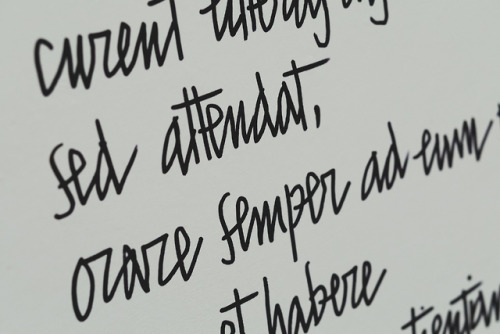 curent
sed attendat,
orare semper ad eum
et habere